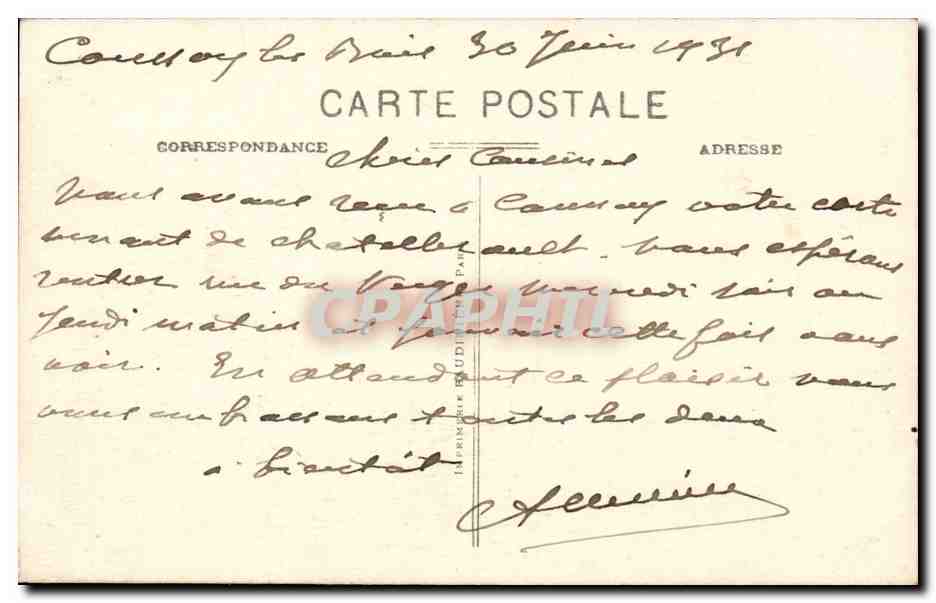 Coussay les Bois 30 Juin 1931
CARTE POSTALE
CORRESPONDANCE
ADRESSE
chères Cousines
nous avons reçu à Coussay votre carte
venant de chatellerault. nous espérons
rentrer rue du Verger mercredi soir ou
jeudi matin et pouvoir cette fois vous
voir. En attendant ce plaisir nous
vous embrassons toutes les deux
à bientôt
CPAPHIL
IMPRIMERIE BAUDINIÈRE PARIS